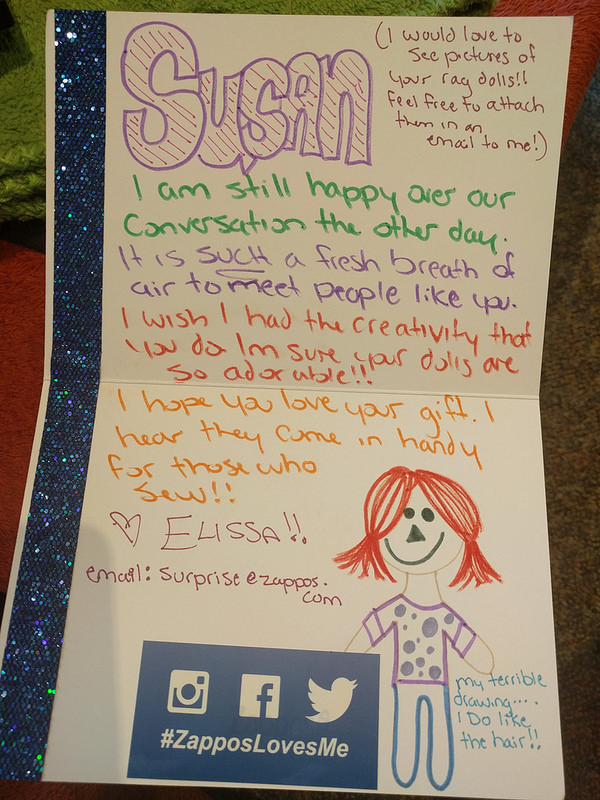 Susan
(I would love to
see pictures of
your rag dolls!!
Feel free to attach
them in an
email to me!)
I am still happy over our
Conversation the other day.
It is such a fresh breath of
air to meet people like you.
I wish I had the creativity that
you do. Im sure your dolls are
so adorable!!
I hope you love your gift. I
hear they come in handy
for those who
sew!!
♡ ELISSA!!
email: surprise@zappos.
com
my terrible
drawing....
I Do like
the hair!!
#ZapposLovesMe